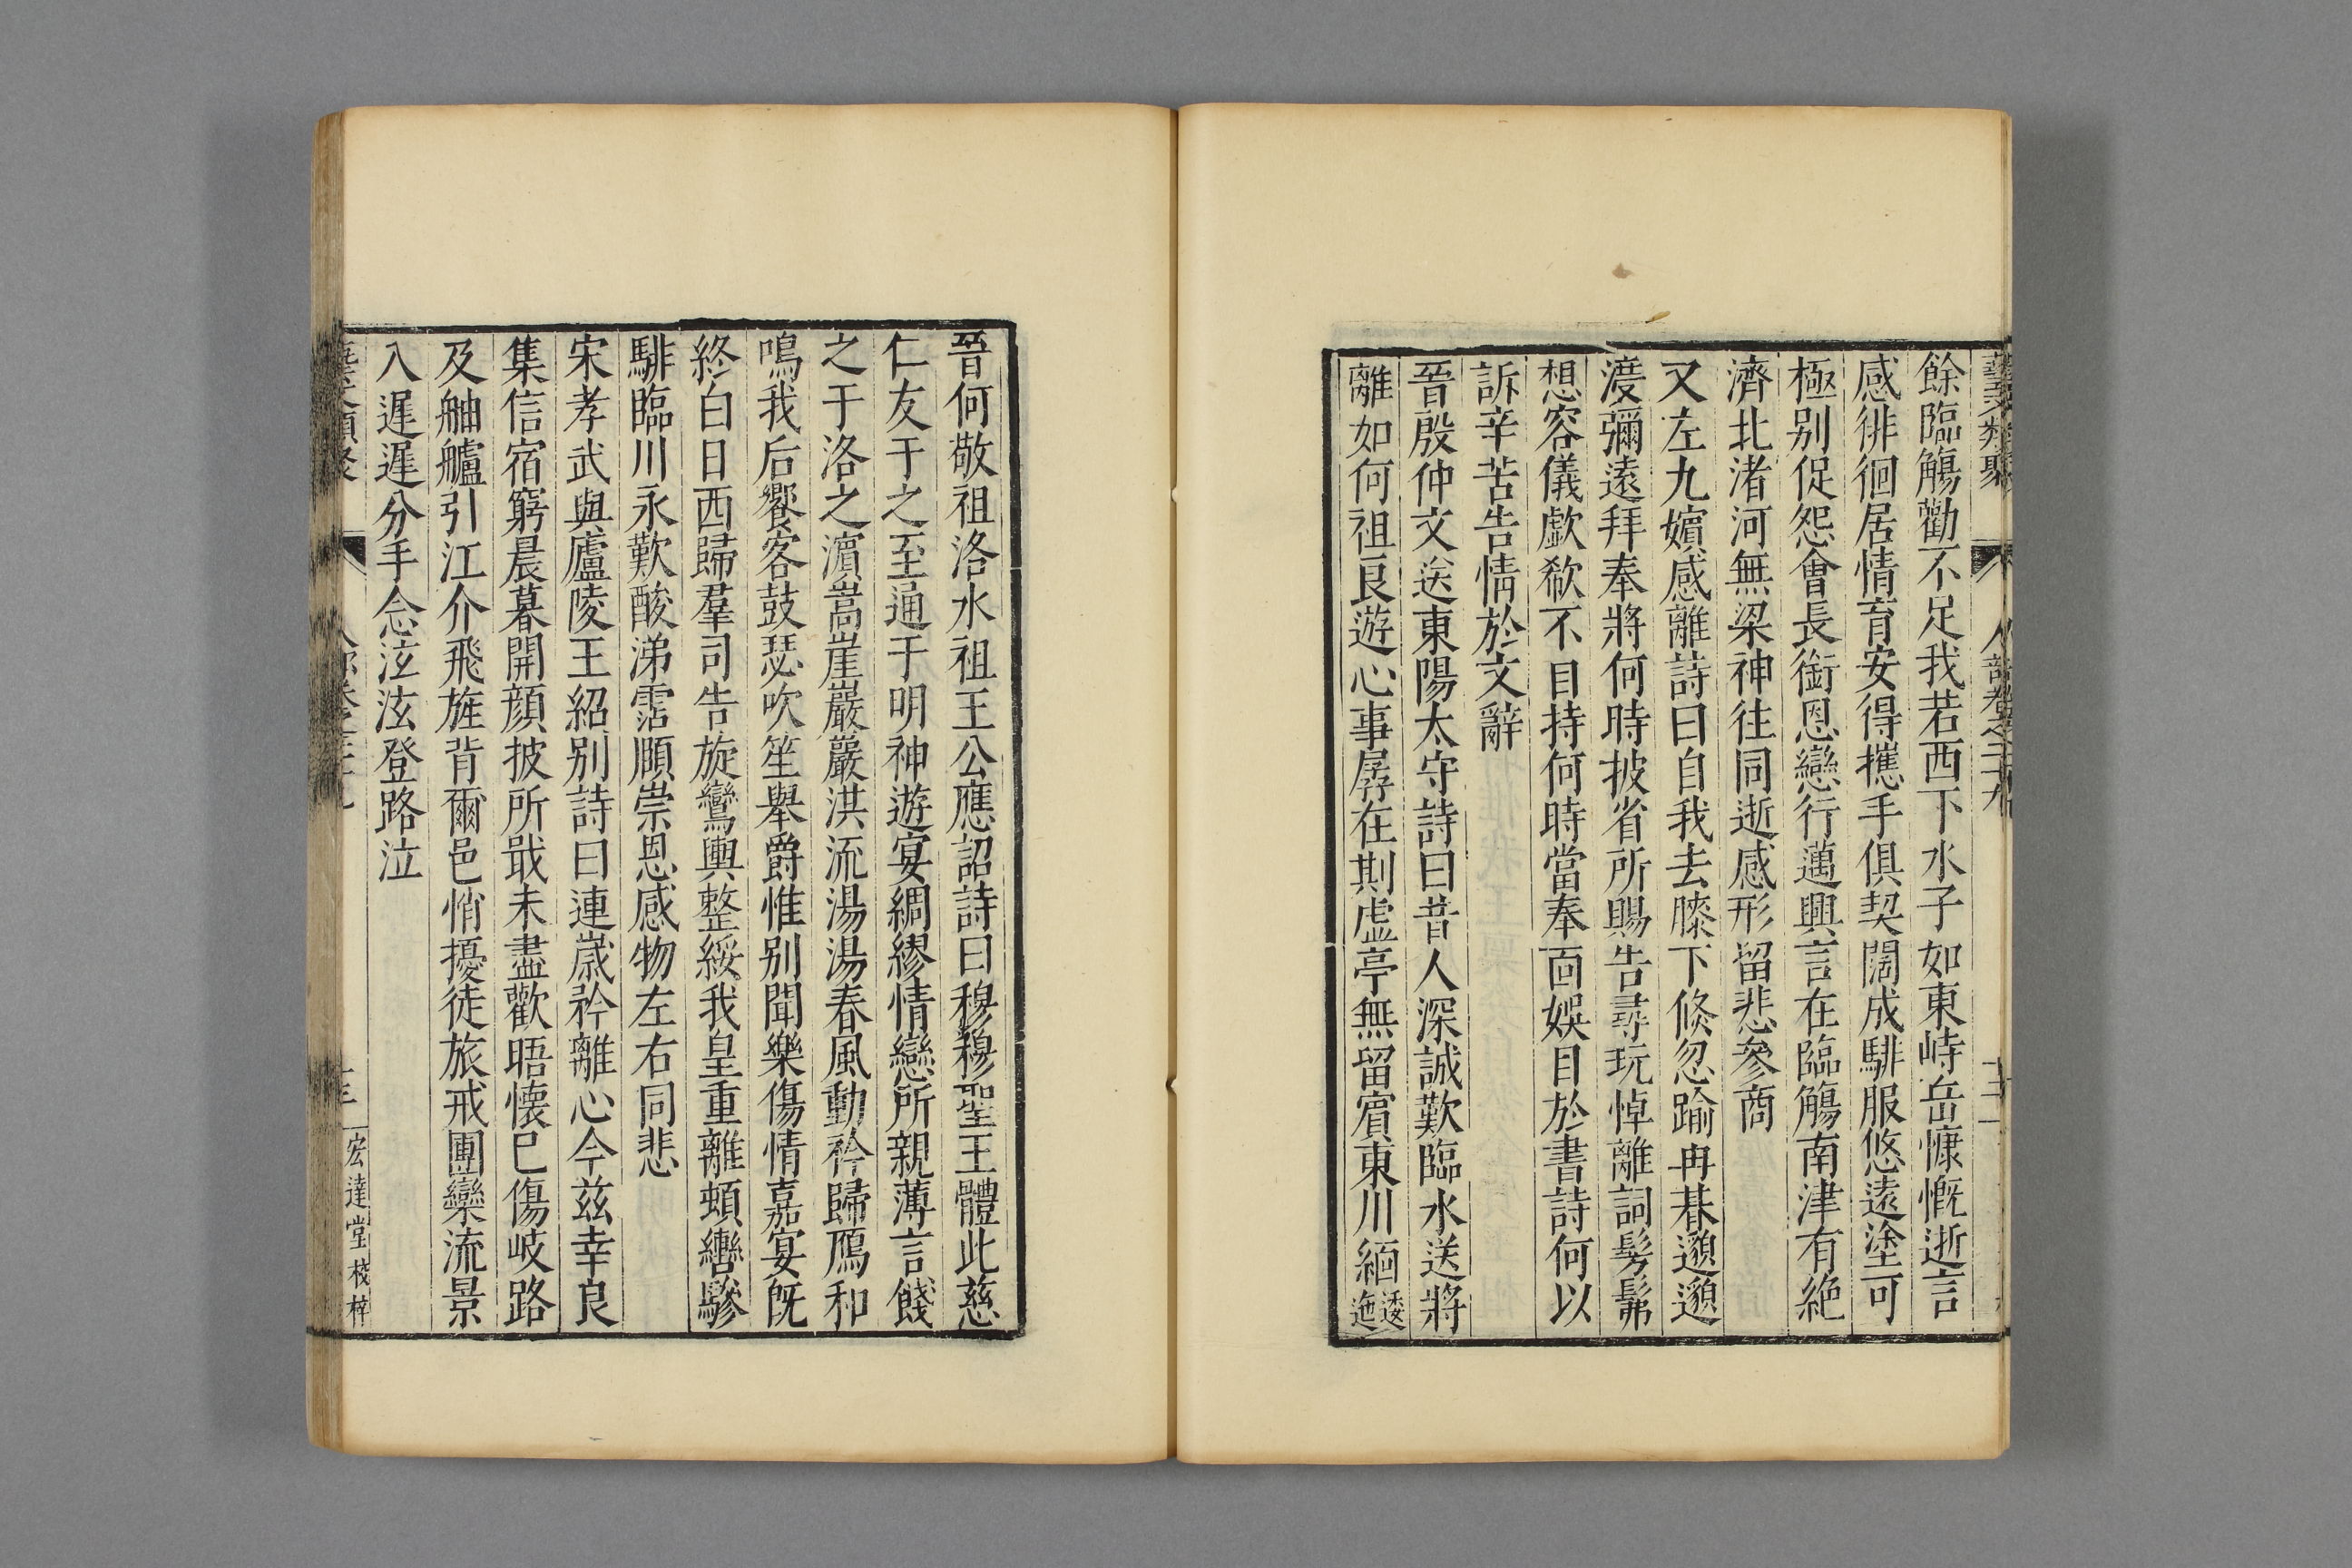 藝文類聚 人部卷之二十九 十二
餘臨觴勸不足我若西下水子如東峙岳慷慨逝言
感徘徊居情育安得擕手俱契闊成騑服悠遠塗可
極别促怨會長銜恩戀行邁興言在臨觴南津有絶
濟北渚河無梁神往同逝感形留悲參商
又左九嬪感離詩曰自我去膝下倐忽踰冉朞邈邈
浸彌遠拜奉將何時披省所賜告尋玩悼離詞髣髴
想容儀歔欷不自持何時當奉面娛目於書詩何以
訴辛苦告情於文辭
晉殷仲文送東陽太守詩曰昔人深誠歎臨水送將
離如何祖良遊心事孱在斯虛亭無留賓東川緬逶迤
晉何敬祖洛水祖王公應詔詩曰穆穆聖王體此慈
仁友于之至通于明神遊宴綢繆情戀所親薄言餞
之于洛之濵嵩崖巖巖洪流湯湯春風動衿歸鴈和
鳴我后饗客鼓瑟吹笙舉爵惟别聞樂傷情嘉宴旣
終白日西歸羣司告旋鸞輿整綏我皇重離頓轡驂
騑臨川永歎酸涕霑頤崇恩感物左右同悲
宋孝武與廬陵王紹别詩曰連嵗衿離心今兹幸良
集信宿窮晨暮開顔披所戢未盡歡晤懐巳傷岐路
及舳艫引江介飛旌背爾邑悄擾徒旅戒團欒流景
入遲遲分手念泫泫登路泣
宏達堂校梓